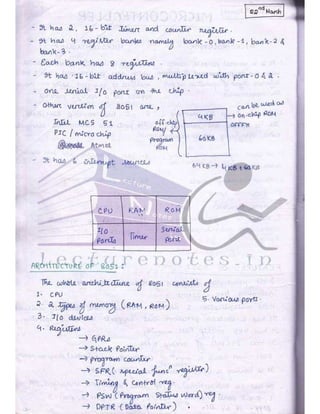 22nd March
- It has 2, 16-bit timer and counter register.
- It has 4 register banks namely bank-0, bank-1, bank-2 &
bank-3.
- Each bank has 8 registers.
- It has 16-bit address bus, multiplexed with port-0 & 2.
- one serial I/o port on the chip.
- Other version of 8051 are,
Intel MCS 51
PIC / micro chip
Atmel
- It has 6 interrupt sources
off-chip
ROM /
program
ROM
4KB
60KB
can be used as
→ on-chip ROM
0FFFH
64KB → 4KB + 60KB
CPU RAM ROM
I/o
Ports
Timer
Serial
Port
Lecturenotes.in
ARCHITECTURE OF 8051:
The whole architecture of 8051 consists of
1. CPU
2. 2 types of memory (RAM, ROM)
3. I/o devices
4. Registers
5. Various ports
→ GPRs
→ Stack Pointer
→ program counter
→ SFR (special func" register)
→ Timing & Control reg.
→ PSW (Program Status Word) reg.
→ DPTR (Data Pointer)